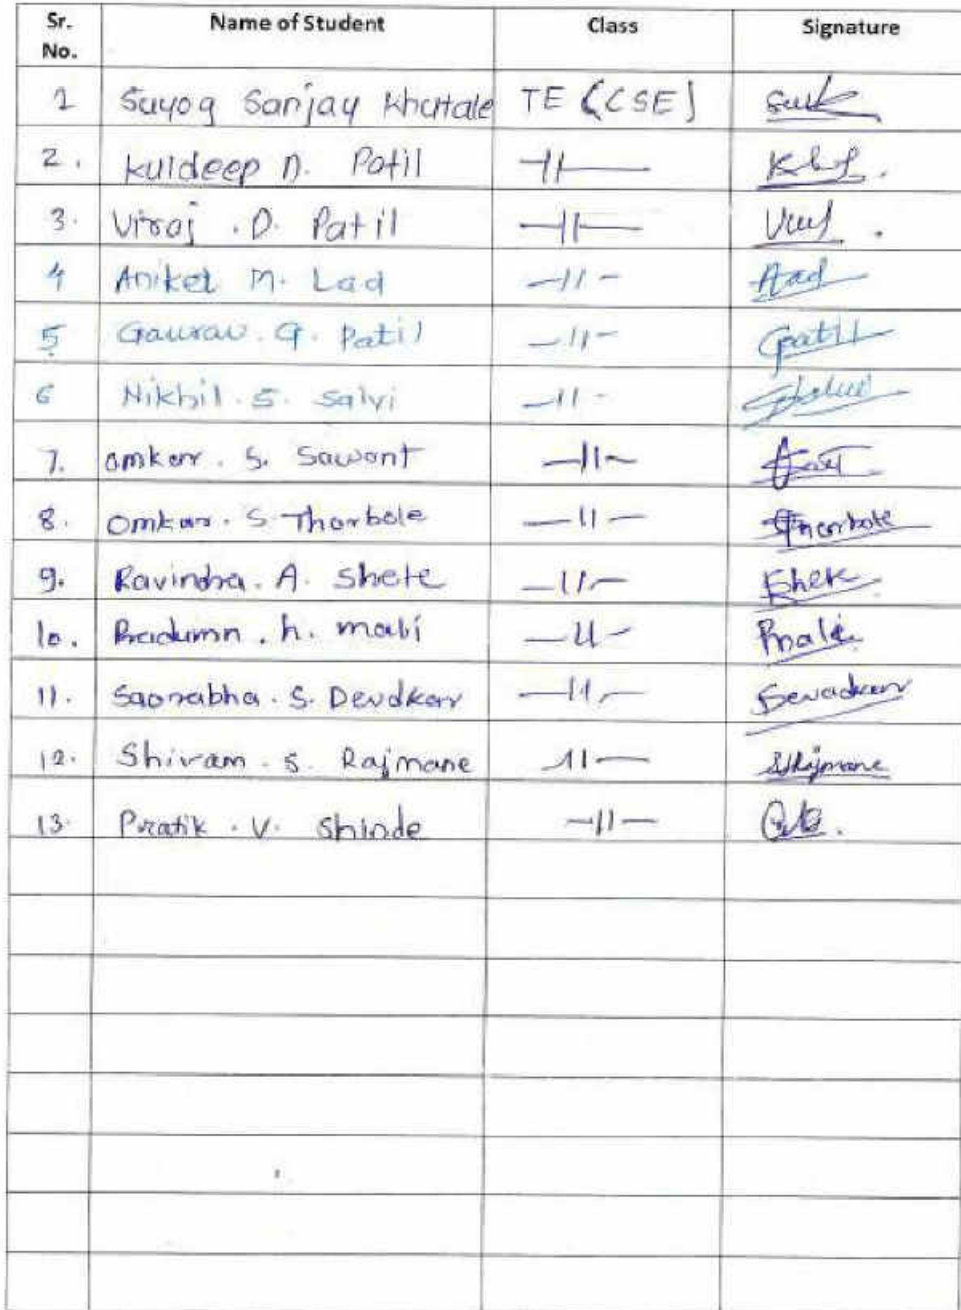 Sr. No. Name of Student Class Signature
1 Suyog Sanjay Khutale TE (CSE)
2. Kuldeep D. Patil —11—
3. Viraj . D. Patil —11—
4 Aniket M. Lad —11— Aad
5 Gaurav. G. Patil —11— Gpatil
6 Nikhil. S. Salvi —11—
7. Omkar. S. Sawant —11—
8. Omkar. S. Thorbole —11— Thorbole
9. Ravindra. A. Shete —11—
10. Pradumn. h. mali —11— Pmali
11. Saorabha. S. Devdkar —11—
12. Shivam. S. Rajmane —11— SRajmane
13. Pratik. V. Shinde —11—